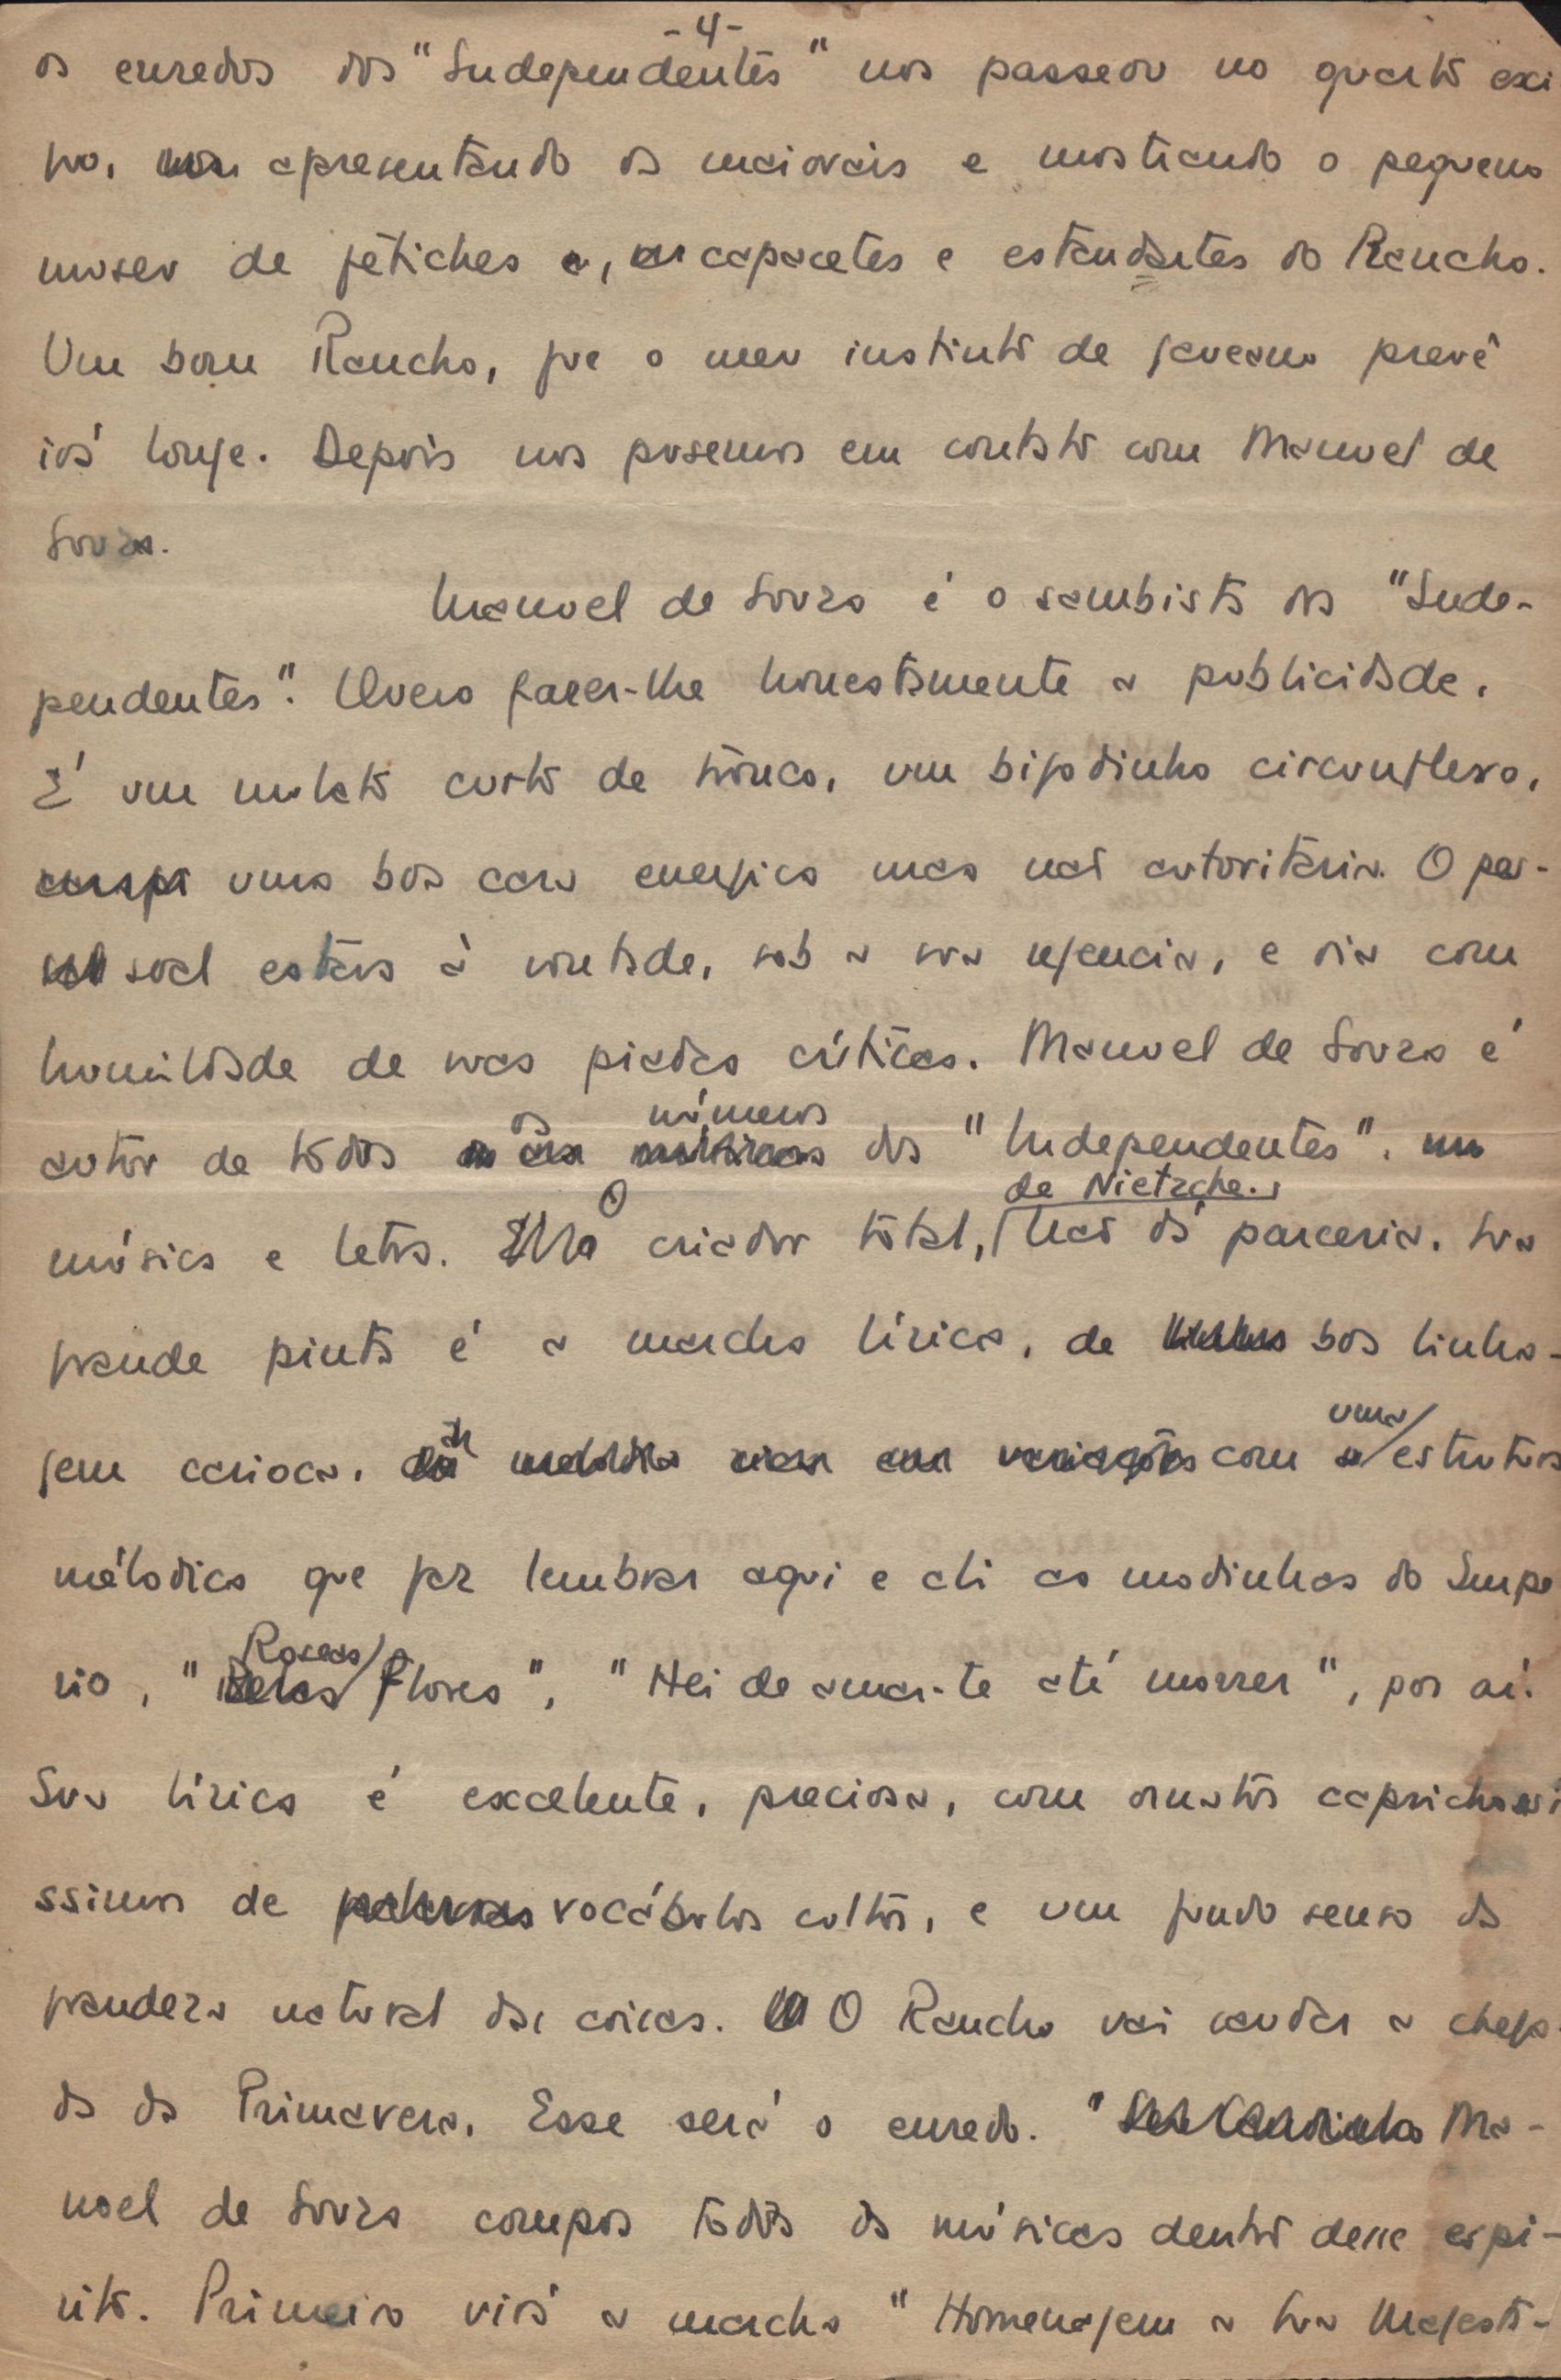 -4-
os enredos dos "Independentes" nos passeou no quarto exi
guo, apresentando os maiorais e mostrando o pequeno
museu de fétiches, capacetes e estandartes do Rancho.
Um bom Rancho, que o meu instinto de gaveano prevê
irá longe. Depois nos pusemos em contato com Manuel de
Souza.
Manuel de Souza é o sambista dos "Inde-
pendentes". Quero fazer-lhe honestamente a publicidade.
É um mulato curto de tronco, um bigodinho circunflexo,
uma boa cara energica mas não autoritaria. O pes-
soal estava à vontade, sob a sua regencia, e ria com
humildade de suas piadas críticas. Manuel de Souza é
os números
autor de todos dos "Independentes",
de Nietzche.
música e letra. O criador total, Não dá parceria. Sua
grande pinta é a marcha lírica, de boa linha-
uma
gem carioca, com estrutura
mélodica que faz lembrar aqui e ali as modinhas do Impe
Roseas
rio, " flores", "Hei de amar-te até morrer", por aí.
Sua lírica é excelente, preciosa, com ornatos caprichosi
ssimos de vocábulos cultos, e um fundo senso da
grandeza natural das coisas. O Rancho vai saudar a chega-
da da Primavera. Esse será o enredo. Ma-
noel de Souza compos todas as músicas dentro desse espi-
rito. Primeiro virá a marcha "Homenagem a Sua Majesta-